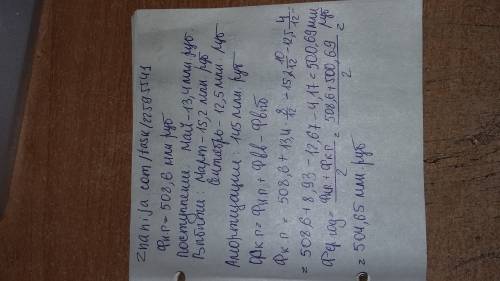 znanija com/task/22595541
Фнп = 508,6 млн руб
Поступлении май - 13,4 млн руб
Выбытии март - 15,2 млн руб
октябрь - 12,5 млн руб
Амортизации 145 млн руб
Фкп = Фнп + Фвв - Фвыб
Фкп = 508,6 + 13,4 8/12 - 15,2 10/12 - 12,5 4/12 =
= 508,6 + 8,93 - 12,67 - 4,17 = 500,69 млн руб
Ф ср год = Фнп + Фкп / 2 = 508,6 + 500,69 / 2 =
= 504,65 млн руб